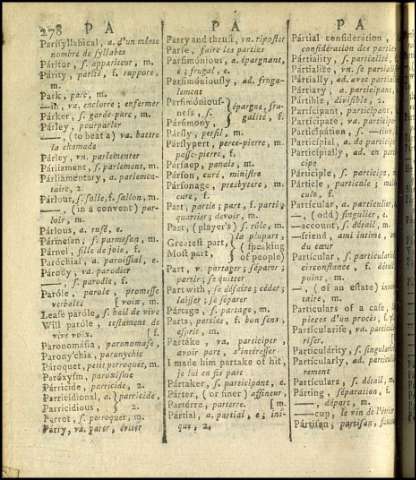 278 P A
P A
P A
Parisyllabical, a. d'un même
nombre de syllabes
Páritor, s. appariteur, m.
Párity, parité, f. rapport,
m.
Park, parc, m.
—in, va. enclorre; enfermer
Párker, s. garde-parc, m.
Párley, pourparler
—, (to beat a) va. battre
la chamade
Párley, vn. parlementer
Párliament, s. parlement, m.
Parliamentary, a. parlementaire, 2.
Parlour, s. salle, f. sallon, m.
—, (in a convent) parloir, m.
Párlous, a. rusé, e.
Pármesan, s. parmesan, m.
Párnel, fille de joie, f.
Paróchial, a. paroissial, e.
Párody, va. parodier
—, s. parodie, f.
Paróle, parole, promesse
verbale [voix, m.
Lease paróle, s. bail de vive
Will paróle, testament de
vive voix [f.
Paronomásia, paronomase,
Parony'chia, paronychie
Pároquet, petit perroquet, m.
Paróxysm, paroxisme
Párricide, parricide, 2.
Parricidional, a. parricide,
Parricidious, 2.
Parrot, s. perroquet, m.
Párry, va. parer, éviter
Parry and thrust, vn. riposter
Parse, faire les parties
Parsimónious, a. épargnant,
e; frugal, e.
Parsimóniously, ad. frugalement
Parsimónious-
ness, s. épargne, fru-
Pársimony, galité, f.
Pársley, persil, m.
Pársleypert, perce-pierre, m.
passe-pierre, f.
Pársnep, panais, m.
Párson, curé, ministre
Pársonage, presbytere, m.
cure, f.
Part, partie; part, f. parti;
quartier; devoir, m.
Part, (player's) s. rôle, m.
la plupart,
Greatest part, (speaking
Most part, of people)
Part, v. partager; séparer;
partir; se quitter
Part with, se défaire; céder;
laisser; se séparer
Pártage, s. partage, m.
Parts, parties, f. bon sens,
esprit, m.
Partáke, va. participer
avoir part, s'intéresser
I made him partake of hit,
je lui en fis part
Partáker, s. participant, e.
Párter, (or finer) affineur,
Partérre, parterre. [m.
Pártial, a. partial, e; inique, 2.
Pártial consideration,
considération des parties
Partiálity, s. partialité, f.
Pártialize, vn. se partialiser
Pártially, ad. avec partialité
Pártible, divisible, 2.
Partícipant, participant,
Partícipate, va. participer
Participátion, s. —
Participial, a. de participe
Participially, ad. en participe
Párticiple, s. participe, m.
Párticle, particule;
Partícular, a. particulier,
—, (odd) singulier, e.
—account, s. détail, m.
—friend, ami intime,
du cœur
Partícular, s. particularité,
circonstance, f. détail,
point, m.
—, (of an estate)
Particulars of a case,
pieces d'un procès,
Partícularise, va.
Particulárity, s. singularité
Partícularly, ad. particulierement
Partículars, s. détail, m.
Párting, séparation, f.
—, départ, m.
—cup, le vin de l'étrier
Pártisan, partisan,